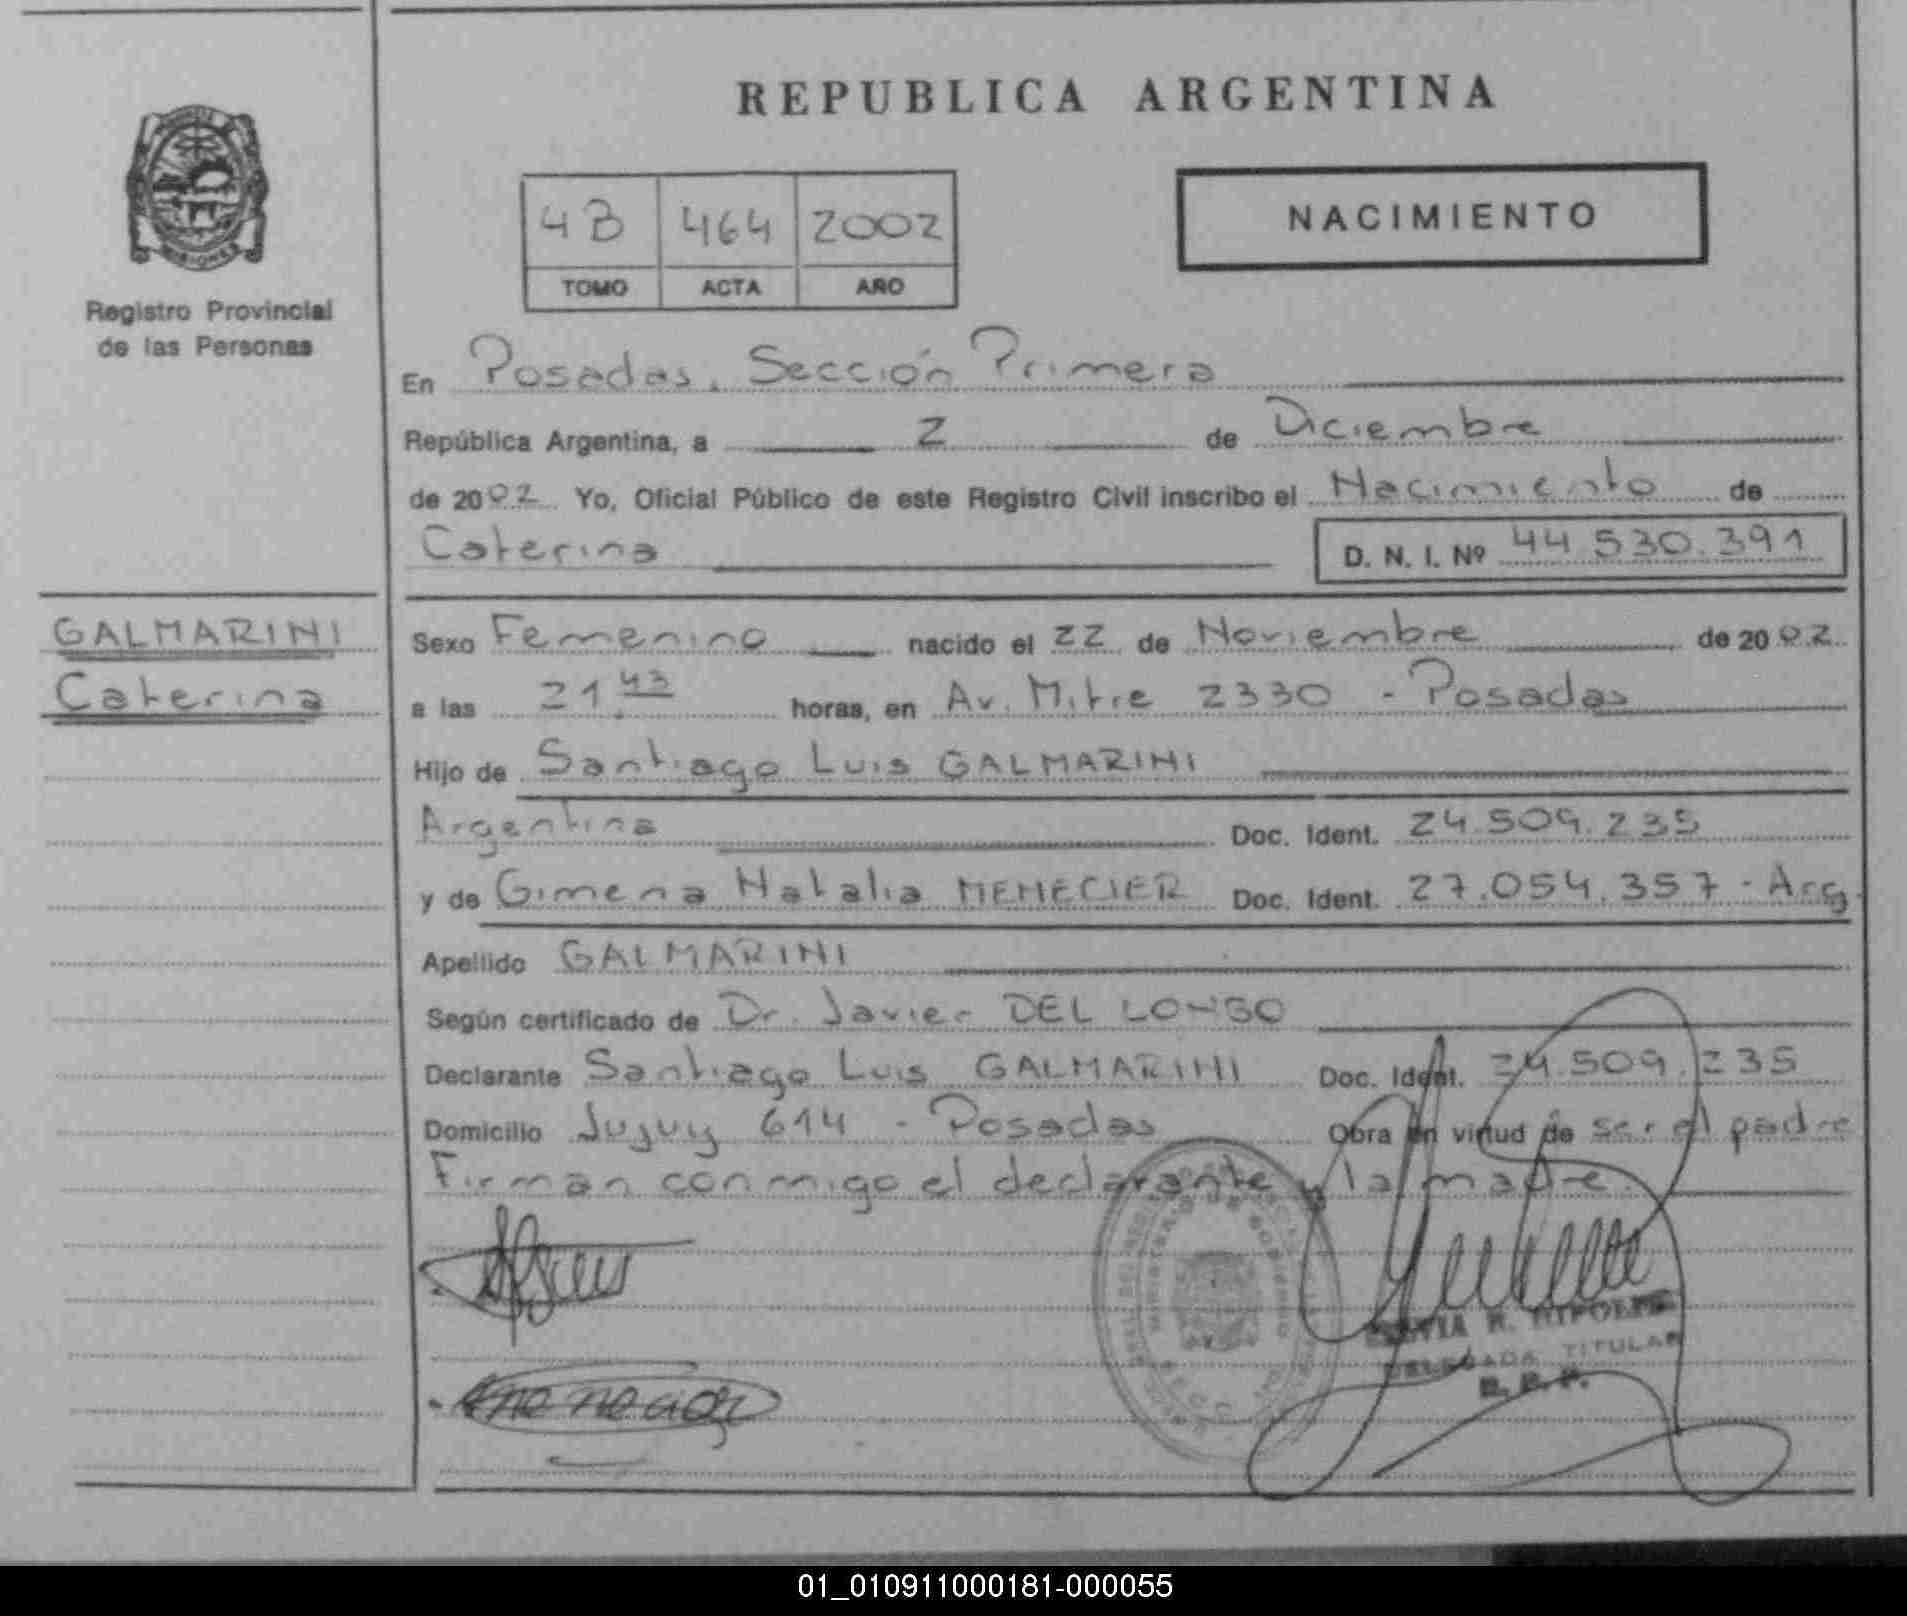 REPUBLICA ARGENTINA
MISIONES
Registro Provincial
de las Personas
4B 464 2002
TOMO ACTA AÑO
NACIMIENTO
En Posadas, Sección Primera
República Argentina, a 2 de Diciembre
de 2002 Yo, Oficial Público de este Registro Civil inscribo el Nacimiento de
Caterina D. N. I. Nº 44.530.391
GALMARINI
Caterina
Sexo Femenino nacido el 22 de Noviembre de 2002
a las 21.43 horas, en Av. Mitre 2330 - Posadas
Hijo de Santiago Luis GALMARINI
Argentina Doc. Ident. 24.509.235
y de Gimena Natalia MENECIER Doc. Ident. 27.054.357 - Arg.
Apellido GALMARINI
Según certificado de Dr. Javier DEL LONGO
Declarante Santiago Luis GALMARINI Doc. Ident. 24.509.235
Domicilio Jujuy 614 - Posadas Obra en virtud de ser el padre
Firman conmigo el declarante y la madre
R. RIPOLL
DELEGADA TITULAR
R. P. P.
01_010911000181-000055